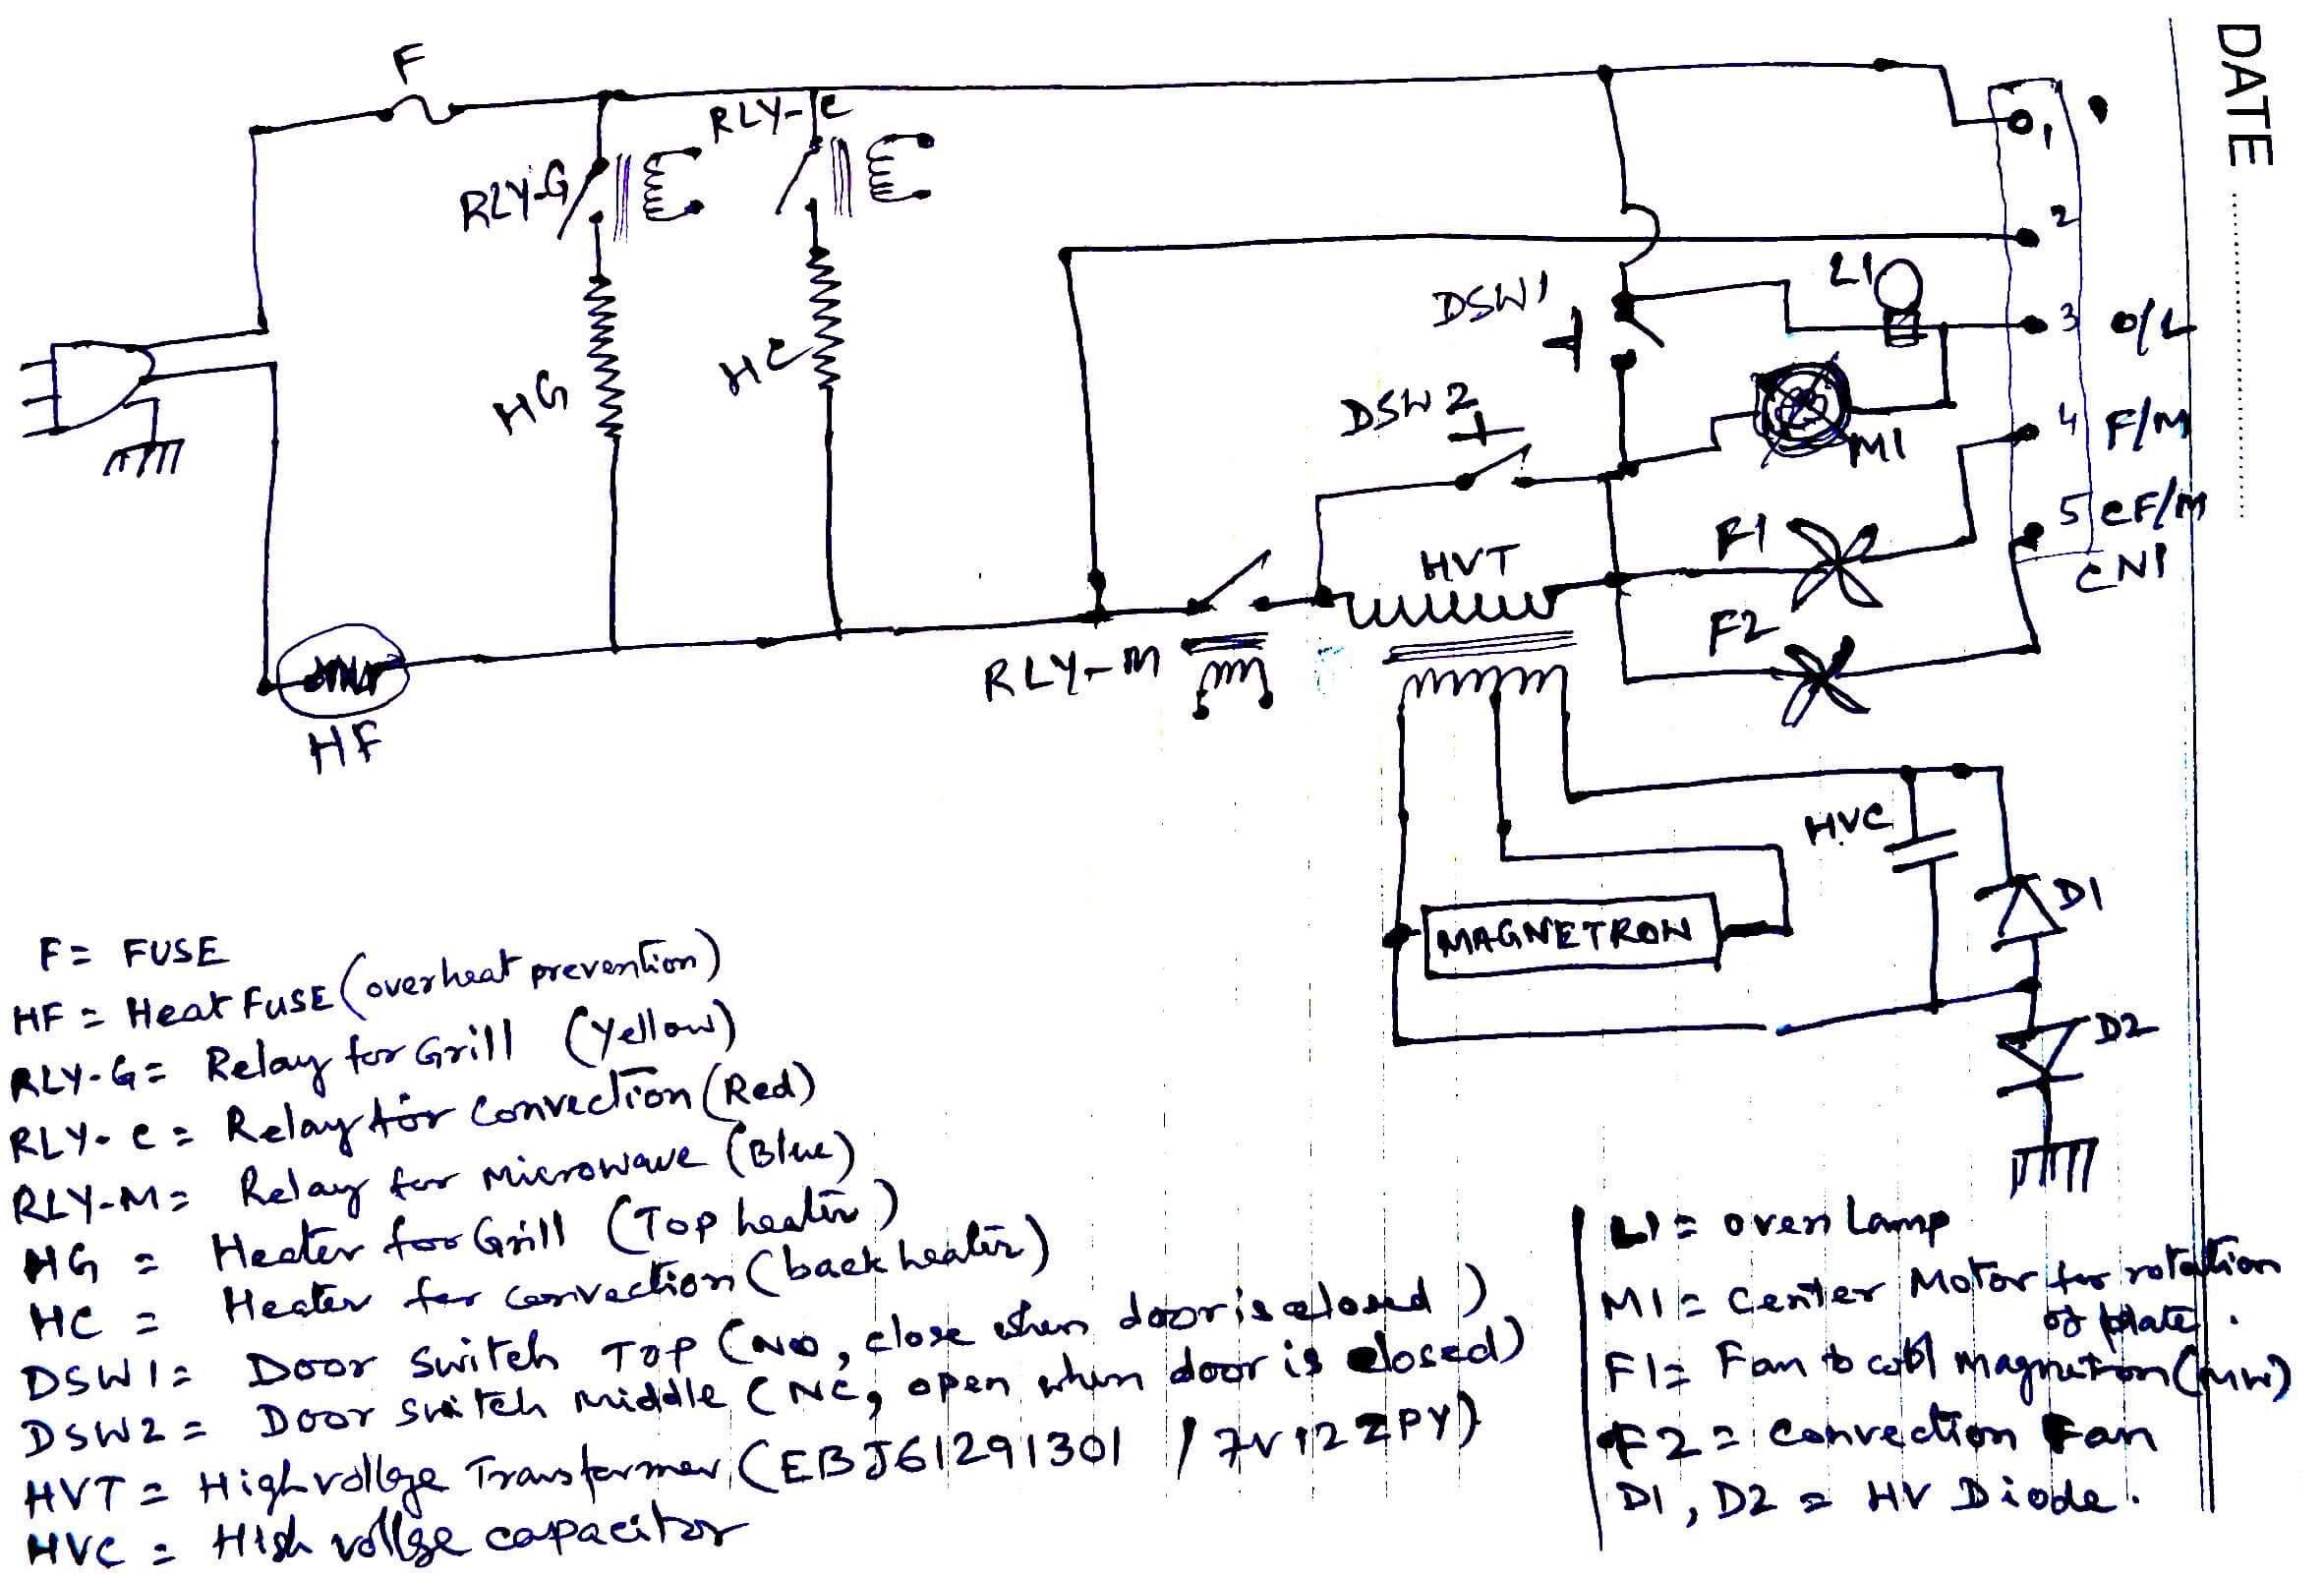 DATE
F
RLY-C
RLY-G
1
2
L1
DSW1
3 O/L
HC
HG
DSW2
M1
4 F/M
5 CF/M
CN1
F1
HVT
F2
RLY-M
HF
HVC
D1
MAGNETRON
D2
F = FUSE
HF = Heat FUSE (overheat prevention)
RLY-G = Relay for Grill (Yellow)
RLY-C = Relay for convection (Red)
RLY-M = Relay for Microwave (Blue)
HG = Heater for Grill (Top heater)
HC = Heater for convection (back heater)
DSW1 = Door Switch TOP (NO, close when door is closed)
DSW2 = Door switch middle (NC, open when door is closed)
HVT = High voltage Transformer (EBJ61291301 / 7V122PY)
HVC = High voltge capacitor
L1 = oven Lamp
M1 = Center Motor for rotation
of plate.
F1 = Fan to cool magnetron (MW)
F2 = convection Fan
D1, D2 = HV Diode.